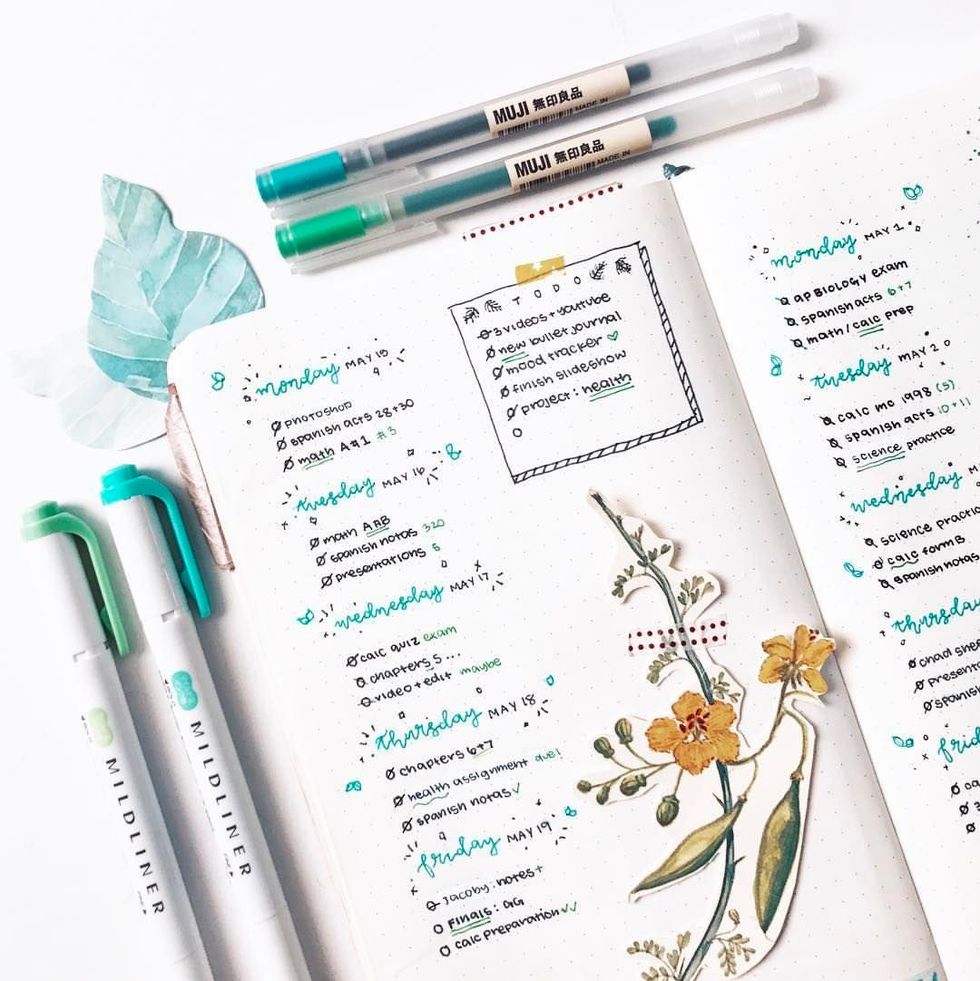 MUJI 無印良品
MADE IN
MUJI 無印良品
MADE IN
monday MAY 15
photoshop
spanish acts 28+30
math A#1 #3
tuesday MAY 16
math AAB
spanish notas 320
presentations 5
wednesday MAY 17
calc quiz exam
chapters 5...
video+edit maybe
thursday MAY 18
chapters 6+7
health assignment due!
spanish notas ✓
friday MAY 19
Jacoby: notes+
Finals: GG
calc preparation ✓✓
TODO
3 videos + youtube
new bullet journal
mood tracker ♡
finish slideshow
project: health
monday MAY 1
ap BIOLOGY exam
spanish acts 6+7
math/calc prep
tuesday MAY 2
calc mc 1998 (5)
spanish acts 10+11
science practice
wednesday M
science practic
calc form B
spanish notas
thursda
chad shee
present
spanish
frid
MILDLINER
MILDLINER